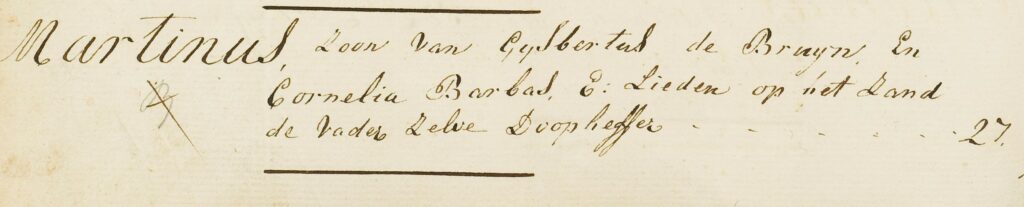 Martinus, Zoon van Gysbertus de Bruyn, En
Cornelia Barbas, E: Lieden op het Zand
de Vader Zelve Doopheffer - - - - - 27.